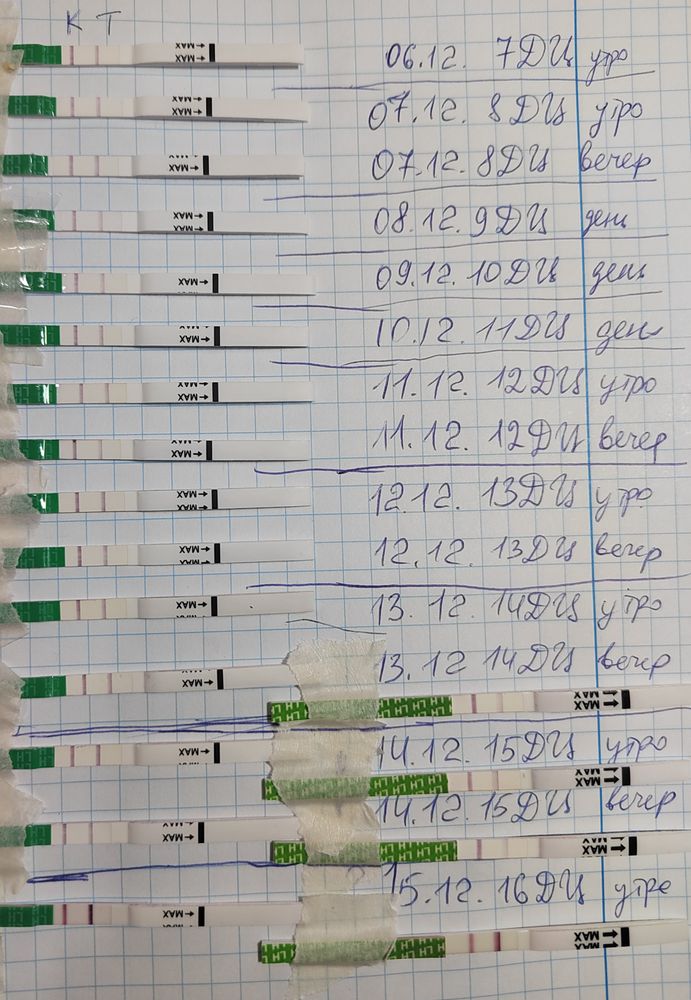 К Т
06.12. 7ДЦ утро
07.12. 8ДЦ утро
07.12. 8ДЦ вечер
08.12. 9ДЦ день
09.12. 10ДЦ день
10.12. 11ДЦ день
11.12. 12ДЦ утро
11.12. 12ДЦ вечер
12.12. 13ДЦ утро
12.12. 13ДЦ вечер
13.12. 14ДЦ утро
13.12 14ДЦ вечер
14.12. 15ДЦ утро
14.12. 15ДЦ вечер
15.12. 16ДЦ утро
MAX
MAX
MAX
MAX
MAX
MAX
MAX
MAX
MAX
MAX
MAX
MAX
MAX
MAX
MAX
MAX
MAX
MAX
MAX